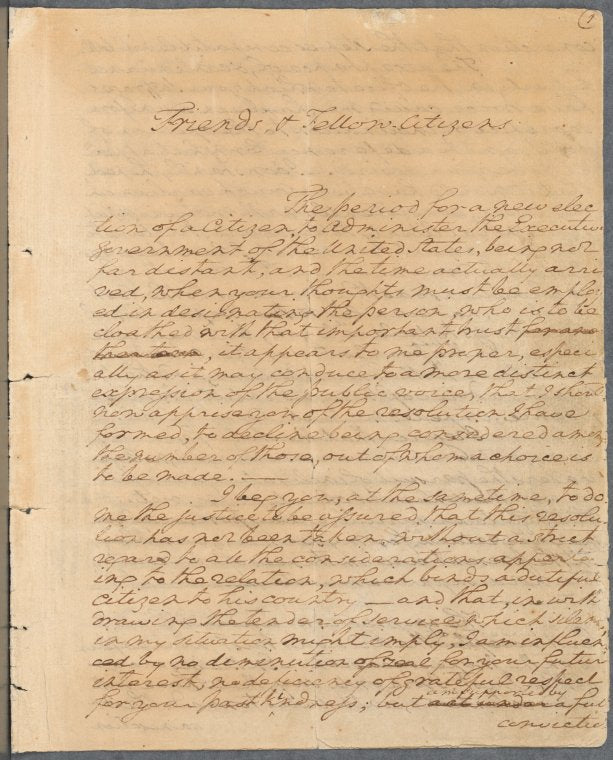 1
Friends & Fellow-Citizens
The period for a new elec
tion of a Citizen, to administer the Executive
government of the United States, being not
far distant; and the time actually arri
ved, when your thoughts must be employ
ed in designating the person, who is to be
cloathed with that important trust for ano
ther term, it appears to me proper, especi
ally as it may conduce to a more distinct
expression of the public voice, that I should
now apprise you of the resolution I have
formed, to decline being considered among
the number of those, out of whom a choice is
to be made. —
I beg you, at the same time, to do
me the justice to be assured, that this resolu
tion has not been taken, without a strict
regard to all the considerations apperta
ing to the relation, which binds a dutiful
citizen to his country — and that, in with
drawing the tender of service which silence
in my situation might imply, I am influen
ced by no diminution of zeal for your future
interest, no deficiency of grateful respect
for your past kindness; but act under am supported by a full
conviction